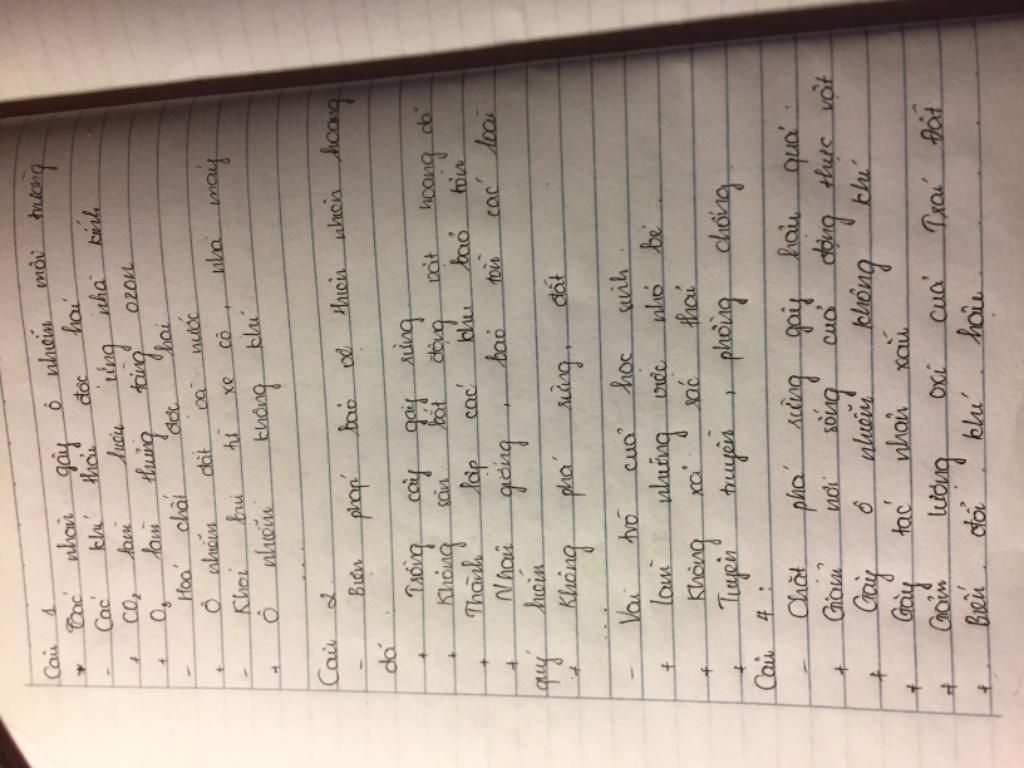 Câu 1
* Tác nhân gây ô nhiễm môi trường
- Các khí thải độc hại
+ CO2 làm hiệu ứng nhà kính
+ O3 làm thủng tầng ozon
- Hoá chất độc hại
+ Ô nhiễm đất và nước
- Khói bụi từ xe cộ, nhà máy
+ Ô nhiễm không khí
Câu 2
- Biện pháp bảo vệ thiên nhiên hoang
dã
+ Trồng cây gây rừng
+ Không săn bắt động vật hoang dã
+ Thành lập các khu bảo tồn
+ Nhân giống, bảo tồn các loài
quý hiếm
+ Không phá rừng, đốt
- Vai trò của học sinh:
+ Làm những việc nhỏ bé
+ Không xả rác thải
+ Tuyên truyền, phòng chống
Câu 4:
- Chặt phá rừng gây hậu quả:
+ Giảm nơi sống của động thực vật
+ Gây ô nhiễm không khí
+ Gây tác nhân xấu
+ Giảm lượng oxi của Trái Đất
+ Biến đổi khí hậu